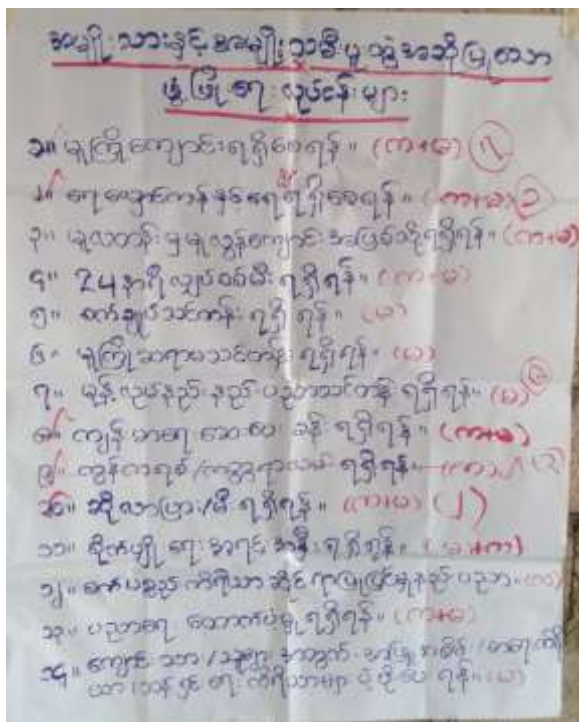 အမျိုးသားနှင့်အမျိုးသမီးပူးတွဲအဆိုပြုသော
ဖွံ့ဖြိုးရေးလုပ်ငန်းများ
၁။ မူကြိုကျောင်းရရှိစေရန်။ (က+မ) ၇
၂။ ရေလှောင်ကန်နှင့်ရေရရှိစေရန်။ (ကာ+မ) ၃
၃။ မူလတန်းမှမူလွန်ကျောင်းအဖြစ်သို့ရရှိရန်။ (က+မ)
၄။ 24 နာရီလျှပ်စစ်မီးရရှိရန်။ (က+မ)
၅။ စက်ချုပ်သင်တန်းရရှိရန်။ (မ)
၆။ မူကြိုဆရာမသင်တန်းရရှိရန်။ (မ)
၇။ မုန့်လုပ်နည်းနည်းပညာသင်တန်းရရှိရန်။ (မ)
၈။ ကျန်းမာရေးဆေးပေးခန်းရရှိရန်။ (က+မ)
၉။ ကွန်ကရစ်/ကတ္တရာလမ်းရရှိရန်။ (က)
၁၀။ ဆိုလာပြား/မီးရရှိရန်။ (က+မ) (၂)
၁၁။ စိုက်ပျိုးရေးအရင်းအနှီးရရှိရန်။ (မ+က)
၁၂။ စက်ပစ္စည်းကိရိယာဆိုင်ရာပြုပြင်မှုနည်းပညာ။ (က)
၁၃။ ပညာရေးထောက်ပံ့မှုရရှိရန်။ (က+မ)
၁၄။ ကျောင်းသား/သူများအတွက်